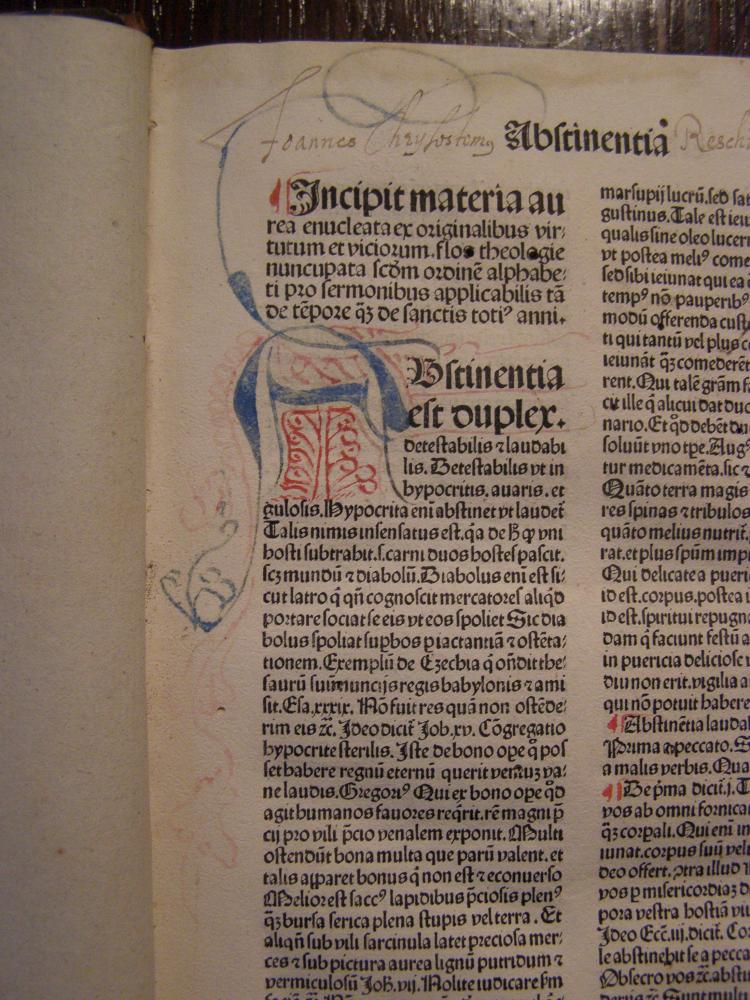 Joannes Chrysostomꝰ Abstinentiā
¶ Incipit materia au
rea enucleata ex originalibus vir⸗
tutum et viciorum. flos theologie
nuncupata scd̄m ordinē alphabe⸗
ti pro sermonibus applicabilis tā
de tēpore q̄ꝫ de sanctis totiꝰ anni.
Abstinentia
est duplex.
detestabilis ⁊ laudabi
lis. Detestabilis vt in
hypocritis, auaris. et
gulosis. Hypocrita eni abstinet vt laudet̄
Talis nimis insensatus est. q̄a de
hosti subtrahit .s. carni duos hostes pascit.
scꝫ mundū ⁊ diabolū. Diabolus eni est si⸗
cut latro q̄ qn̄ cognoscit mercatores aliqd̄
portare sociat se eis vt eos spoliet Sic dia
bolus spoliat suꝑbos ꝑ iactantiā ⁊ ostēta⸗
tionem. Exemplū de Ezechia q̄ on̄dit the⸗
saurū suū nuncijs regis babylonis ⁊ ami
sit. Esa. xxxix. Nō fuit res quā non ostēde⸗
rim eis ꝛc̄. Ideo dicit̄ Job. xv. Cōgregatio
hypocrite sterilis. Iste de bono oꝑe q̄ pos
set habere regnū eternū querit ventuꝫ va⸗
ne laudis. Gregoriꝰ Qui ex bono oꝑe qd̄
agit humanos fauores req̄rit. rē magni p̄
cij pro vili p̄cio venalem exponit. Multi
ostendūt bona multa que parū valent. et
talis apparet bonus q̄ non est ⁊ econuerso
Melior est saccꝰ lapidibus p̄ciosis plenꝰ
q̄ꝫ bursa serica plena stupis vel terra. Et
aliqn̄ sub vili sarcinula latet preciosa mer⸗
ces ⁊ sub pictura aurea lignū putridum ⁊
vermiculosū Joh̄. vij. Nolite iudicare scd̄m
marsupij lucrū. sed sat
gustinus. Tale est ieiu
qualis sine oleo lucern
vt postea meliꝰ come
sed sibi ieiunat qui ea
tempꝰ nō pauperibꝰ
modū offerenda cust
ti qui tantū vel plus c
ieiunāt q̄ꝫ comederēt
rent. Qui talē gram̄ f
cit ille q̄ alicui dat duc
nario. Et qd̄ debēt du
soluūt vno tꝑe. Aug
tur medicamēta. sic
Quāto terra magis
res spinas ⁊ tribulos
quāto melius nutrit̄.
rat. et plus spūm imp
Qui delicate a pueri
id est. corpus. postea
id est. spiritui repugna
dam q̄ faciunt festū
in puericia deliciose
diu non erit. vigilia
qui nō potuit habere
¶ Abstinētia laudab
Prima a peccato. S
a malis verbis. Qua
¶ De p̄ma dicit̄. j. T
vos ab omni fornica
q̄ꝫ corpali. Qui eni in
iunat. corpus suū veli
deo offert. illud
vos ꝑ misericordiaꝫ d
pora vestra hostiā viu
Ideo Ecc̄. iij. dicit̄. Co
le abstinebit se a pecca
Obsecro vos ꝛc̄. abstu